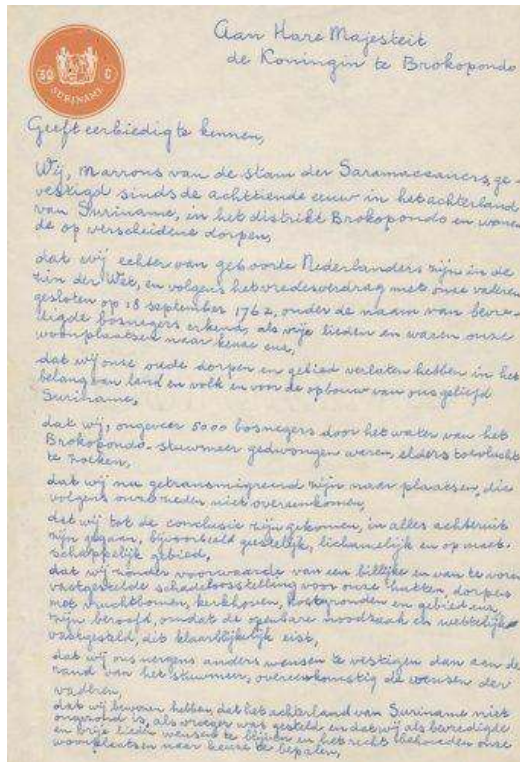 50 C
SURINAME
Aan Hare Majesteit
de Koningin te Brokopondo
Geeft eerbiedig te kennen,
Wij, Marrons van de stam der Saramaccaners, ge-
vestigd sinds de achttiende eeuw in het achterland
van Suriname, en het distrikt Brokopondo en wonen
de op verscheidene dorpen,
dat wij echter van geboorte Nederlanders zijn in de
zin der Wet, en volgens het vredesverdrag met onze vaderen
gesloten op 18 september 1762, onder de naam van bevre-
digde bosnegers erkend, als vrije lieden en waren onze
woonplaatsen naar keuze enz,
dat wij onze oude dorpen en gebied verlaten hebben in het
belang van land en volk en voor de opbouw van ons geliefd
Suriname,
dat wij, ongeveer 5000 bosnegers door het water van het
Brokopondo-stuwmeer gedwongen waren, elders toevlucht
te zoeken,
dat wij nu getransmigreerd zijn naar plaatsen, die
volgens onze zeden niet overeenkomen,
dat wij tot de conclusie zijn gekomen, in alles achteruit
zijn gegaan, bijvoorbeeld geestelijk, lichamelijk en op maat-
schappelijk gebied,
dat wij zonder voorwaarde van een billijke en van te voren
vastgestelde schadeloosstelling voor onze hutten, dorpen
met vruchtbomen, kerkhoven, kostgronden en gebied enz,
zijn beroofd, omdat de openbare noodzaak en wettelijk
vastgesteld, dit klaarblijkelijk eist,
dat wij ons nergens anders wensen te vestigen dan aan de
rand van het stuwmeer, overeenkomstig de wensen der
vaderen,
dat wij bewezen hebben, dat het achterland van Suriname niet
ongezond is, als vroeger was gesteld, en dat wij als bevredigde
en vrije lieden wensen te blijven en het recht behoeden onze
woonplaatsen naar keuze te bepalen,